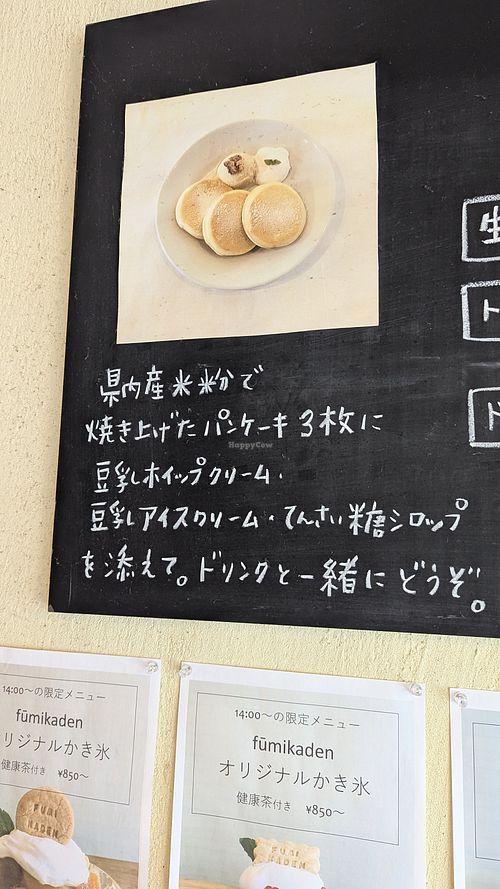 県内産米粉で
焼き上げたパンケーキ3枚に
豆乳ホイップクリーム・
豆乳アイスクリーム・てんさい糖シロップ
を添えて。ドリンクと一緒にどうぞ。
生
ト
ド
HappyCow
14:00〜の限定メニュー
fūmikaden
リジナルかき氷
健康茶付き ¥850〜
FUMI
KADEN
14:00〜の限定メニュー
fūmikaden
オリジナルかき氷
健康茶付き ¥850〜
FUMI
KADEN